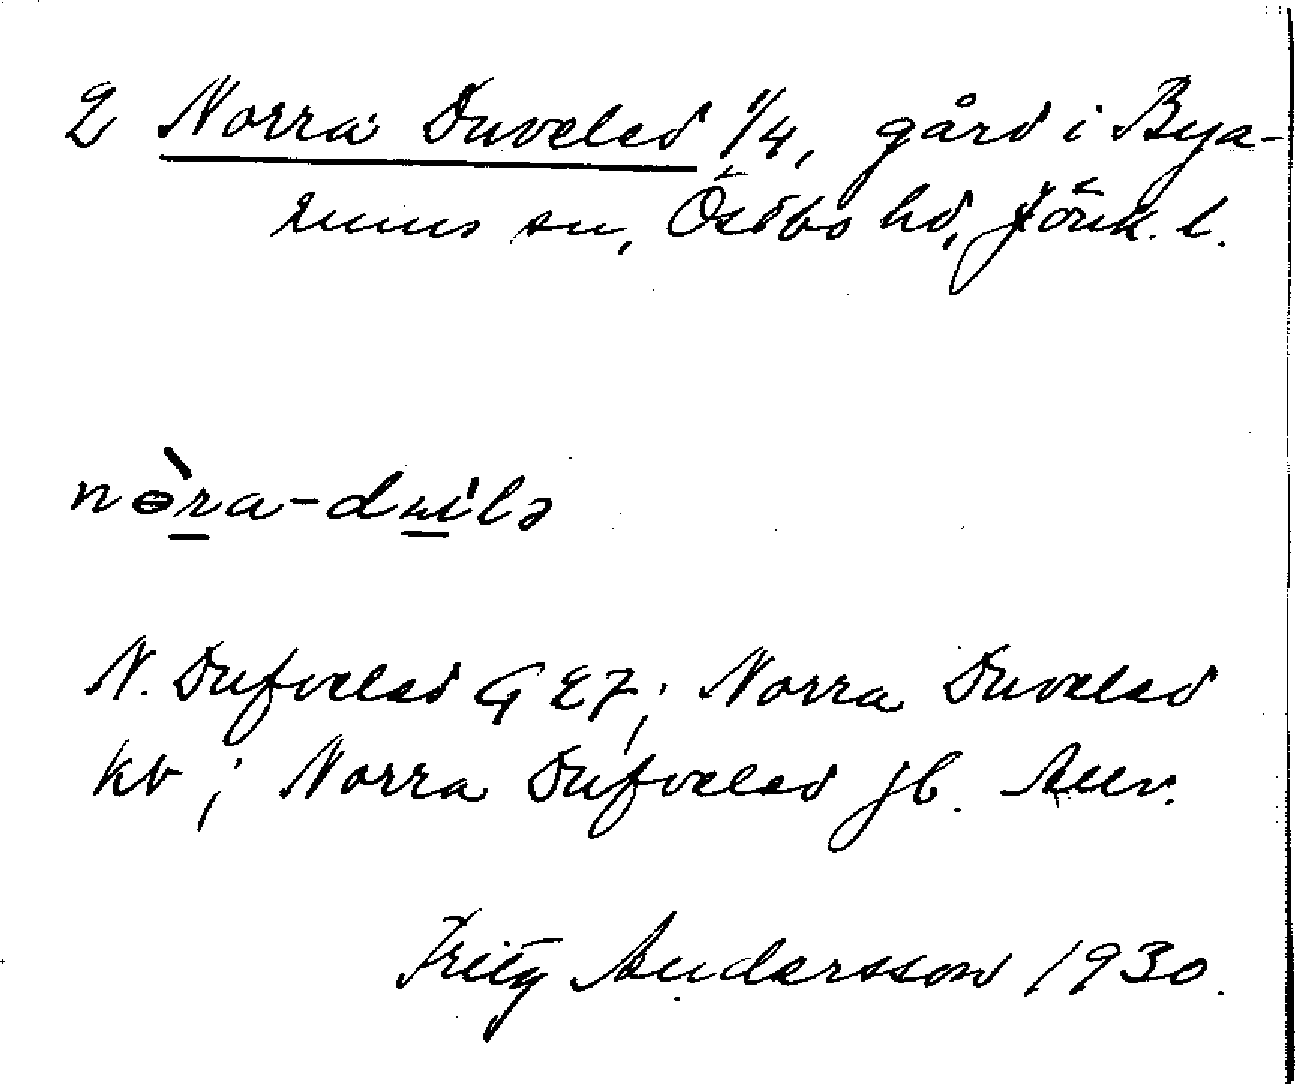 2 Norra Duveled 1/4, gård i Bya-
rums sn, Östbo hd, Jönk. l.
nɵ̀ra-dɯ́ilə
N. Dufveled GEJ; Norra Duveled
kv; Norra Dufveled jb.
Fritz Andersson 1930.